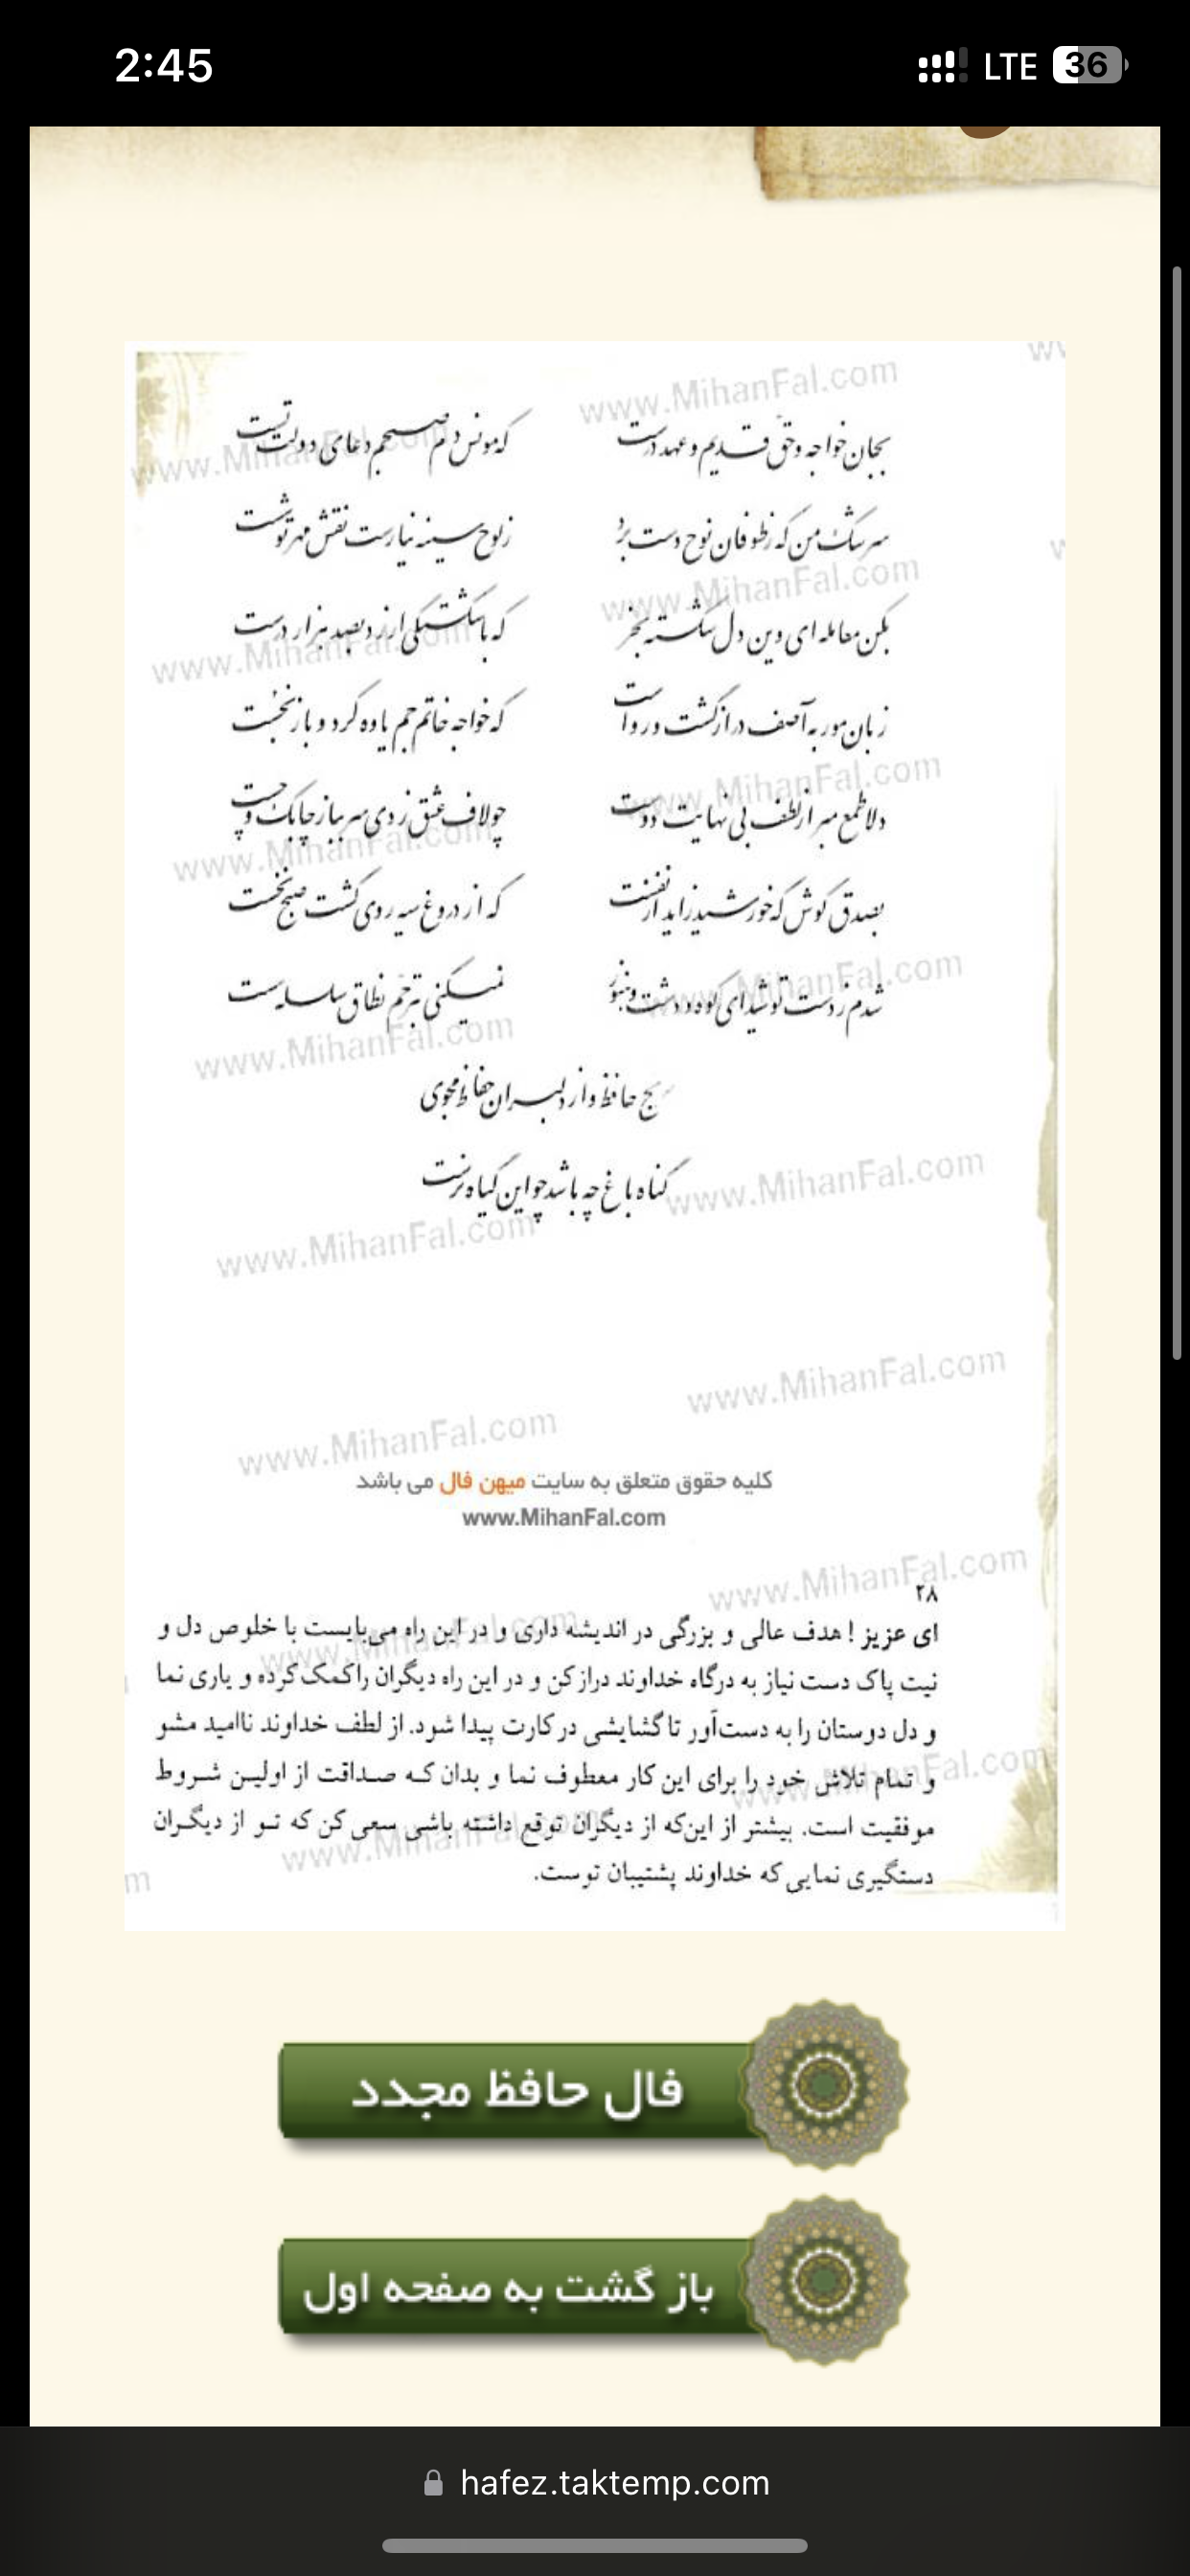 2:45
LTE
36
بجان خواجه و حق قدیم و عهد درست
که مونس دم صبحم دعای دولت تست
سرشک من که ز طوفان نوح دست برد
ز لوح سینه نیارست نقش مهر تو شست
بکن معامله ای وین دل شکسته بخر
که با شکستگی ارزد بصد هزار درست
زبان مور به آصف دراز گشت و رواست
که خواجه خاتم جم یاوه کرد و باز نجست
دلا طمع مبر از لطف بی نهایت دوست
چو لاف عشق زدی سر بباز چابک و چست
بصدق کوش که خورشید زاید از نفست
که از دروغ سیه روی گشت صبح نخست
شدم ز دست تو شیدای کوه و دشت و هنوز
نمیکنی بترحم نطاق سلسله سست
مرنج حافظ و از دلبران حفاظ مجوی
گناه باغ چه باشد چو این گیاه نرست
کلیه حقوق متعلق به سایت میهن فال می باشد
www.MihanFal.com
۲۸
ای عزیز! هدف عالی و بزرگی در اندیشه داری و در این راه می‌بایست با خلوص دل و
نیت پاک دست نیاز به درگاه خداوند دراز کن و در این راه دیگران را کمک کرده و یاری نما
و دل دوستان را به دست‌آور تا گشایشی در کارت پیدا شود. از لطف خداوند ناامید مشو
و تمام تلاش خود را برای این کار معطوف نما و بدان که صداقت از اولین شروط
موفقیت است. بیشتر از این‌که از دیگران توقع داشته باشی سعی کن که تو از دیگران
دستگیری نمایی که خداوند پشتیبان توست.
فال حافظ مجدد
باز گشت به صفحه اول
hafez.taktemp.com